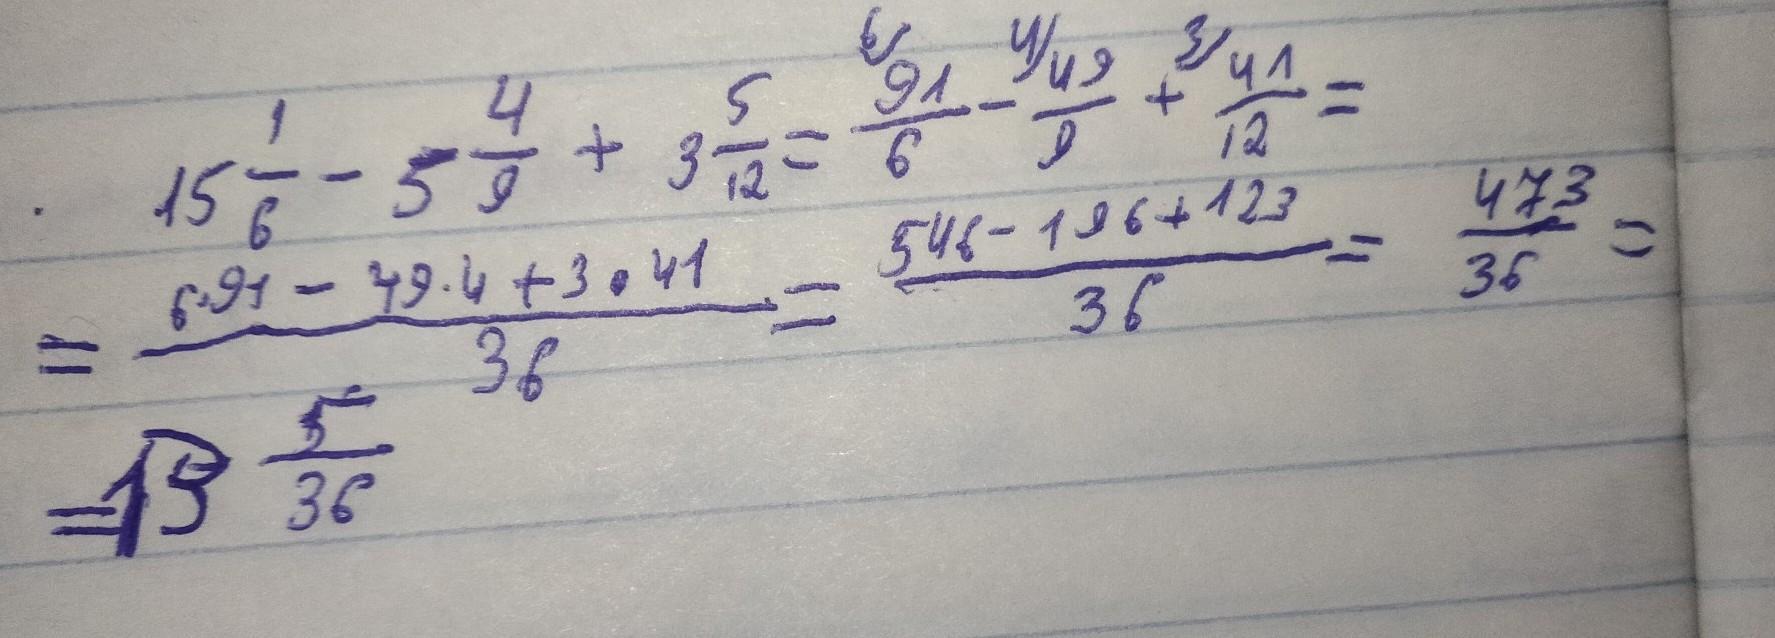 15 1/6 - 5 4/9 + 3 5/12 = 6/ 91/6 - 4/ 49/9 + 3/ 41/12 =
= (6·91 - 49·4 + 3·41)/36 = (546 - 196 + 123)/36 = 473/36 =
= 13 5/36